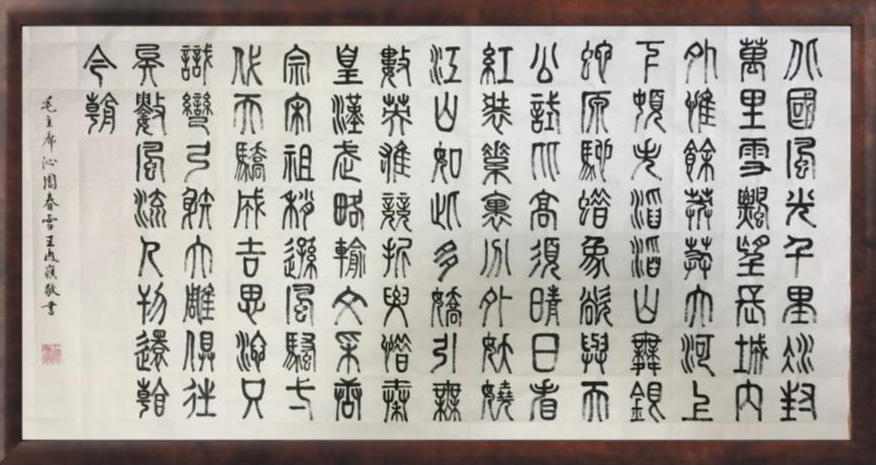 北國風光千里冰封
萬里雪飄望長城內
外惟餘莽莽大河上
下頓失滔滔山舞銀
蛇原馳蜡象欲與天
公試比高須晴日看
紅裝素裹分外妖嬈
江山如此多嬌引無
數英雄競折腰惜秦
皇漢武略輸文采唐
宗宋祖稍遜風騷一
代天驕成吉思汗只
識彎弓射大雕俱往
矣數風流人物還看
今朝
毛主席沁園春雪王嶺敬書